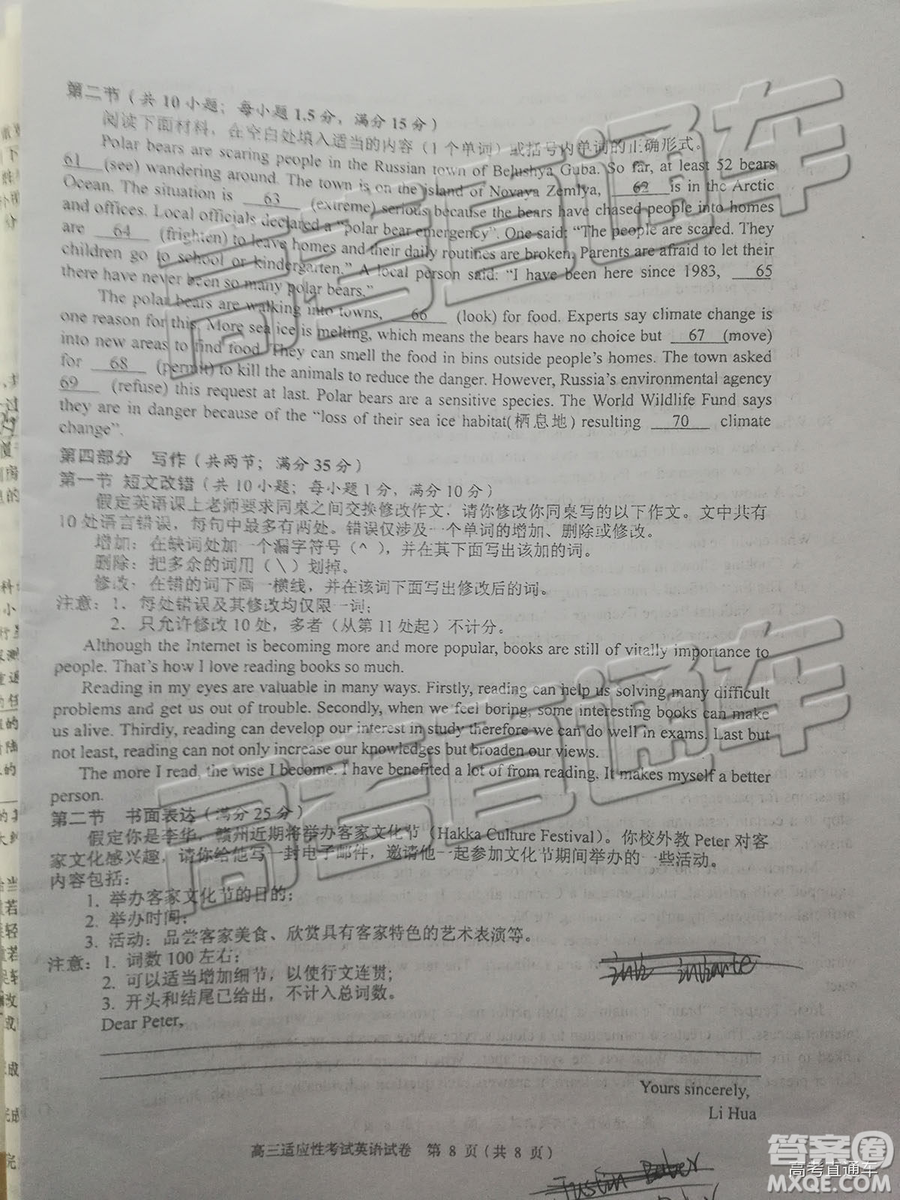 第二节(共10小题;每小题1.5分,满分15分)
阅读下面材料,在空白处填入适当的内容(1个单词)或括号内单词的正确形式。
Polar bears are scaring people in the Russian town of Belushya Guba. So far, at least 52 bears
61 (see) wandering around. The town is on the island of Novaya Zemlya, 62 is in the Arctic
Ocean. The situation is 63 (extreme) serious because the bears have chased people into homes
and offices. Local officials declared a “polar bear emergency”. One said: “The people are scared. They
are 64 (frighten) to leave homes and their daily routines are broken. Parents are afraid to let their
children go to school or kindergarten.” A local person said: “I have been here since 1983, 65
there have never been so many polar bears.”
The polar bears are walking into towns, 66 (look) for food. Experts say climate change is
one reason for this. More sea ice is melting, which means the bears have no choice but 67 (move)
into new areas to find food. They can smell the food in bins outside people’s homes. The town asked
for 68 (permit) to kill the animals to reduce the danger. However, Russia’s environmental agency
69 (refuse) this request at last. Polar bears are a sensitive species. The World Wildlife Fund says
they are in danger because of the “loss of their sea ice habitat(栖息地) resulting 70 climate
change”.
第四部分 写作(共两节;满分35分)
第一节 短文改错(共10小题;每小题1分,满分10分)
假定英语课上老师要求同桌之间交换修改作文,请你修改你同桌写的以下作文。文中共有
10处语言错误,每句中最多有两处。错误仅涉及一个单词的增加、删除或修改。
增加:在缺词处加一个漏字符号(^),并在其下面写出该加的词。
删除:把多余的词用(\)划掉。
修改:在错的词下画一横线,并在该词下面写出修改后的词。
注意:1、每处错误及其修改均仅限一词;
2、只允许修改10处,多者(从第11处起)不计分。
Although the Internet is becoming more and more popular, books are still of vitally importance to
people. That’s how I love reading books so much.
Reading in my eyes are valuable in many ways. Firstly, reading can help us solving many difficult
problems and get us out of trouble. Secondly, when we feel boring, some interesting books can make
us alive. Thirdly, reading can develop our interest in study therefore we can do well in exams. Last but
not least, reading can not only increase our knowledges but broaden our views.
The more I read, the wise I become. I have benefited a lot of from reading. It makes myself a better
person.
第二节 书面表达(满分25分)
假定你是李华,赣州近期将举办客家文化节(Hakka Culture Festival)。你校外教Peter对客
家文化感兴趣,请你给他写一封电子邮件,邀请他一起参加文化节期间举办的一些活动。
内容包括:
1. 举办客家文化节的目的;
2. 举办时间;
3. 活动:品尝客家美食、欣赏具有客家特色的艺术表演等。
注意:1. 词数100左右;
2. 可以适当增加细节,以使行文连贯;
3. 开头和结尾已给出,不计入总词数。
Dear Peter,
Yours sincerely,
Li Hua
高三适应性考试英语试卷 第8页(共8页)
高考直通车
高考直通车
高考直通车
答案圈
MXQE.COM